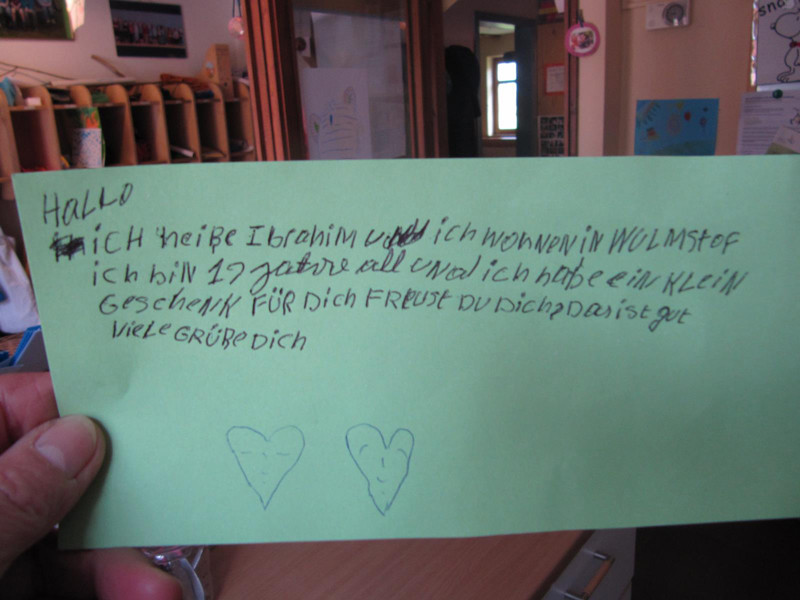 HaLLO
iCH heiße Ibrahim und ich wohnen in WULMStOF
ich bin 12 jahre all und ich habe ein KLEiN
GescheNK FÜR Dich FREUST DU Dich? Das ist gut
VieLe GRÜßE Dich
sna